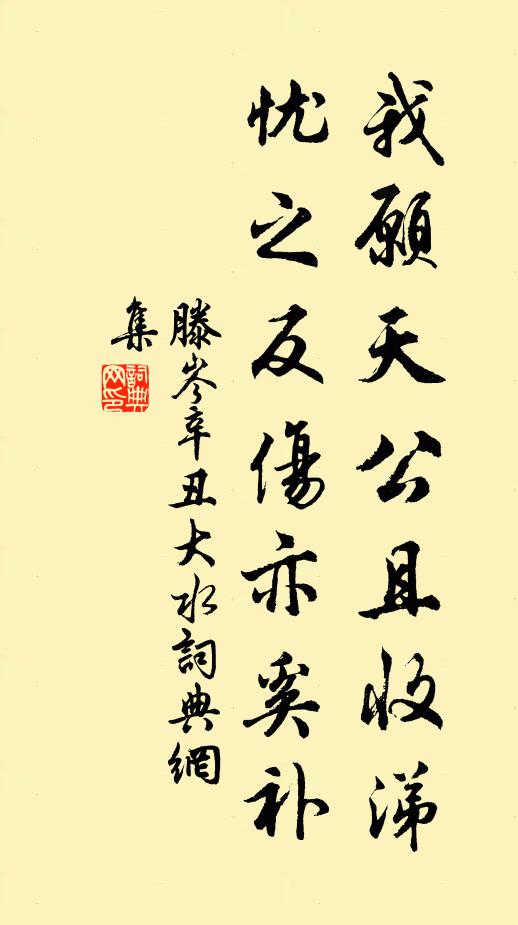 我願天公且收涕
忧之反傷亦奚补
滕岑辛丑大水詞典網
集
詞典
网印